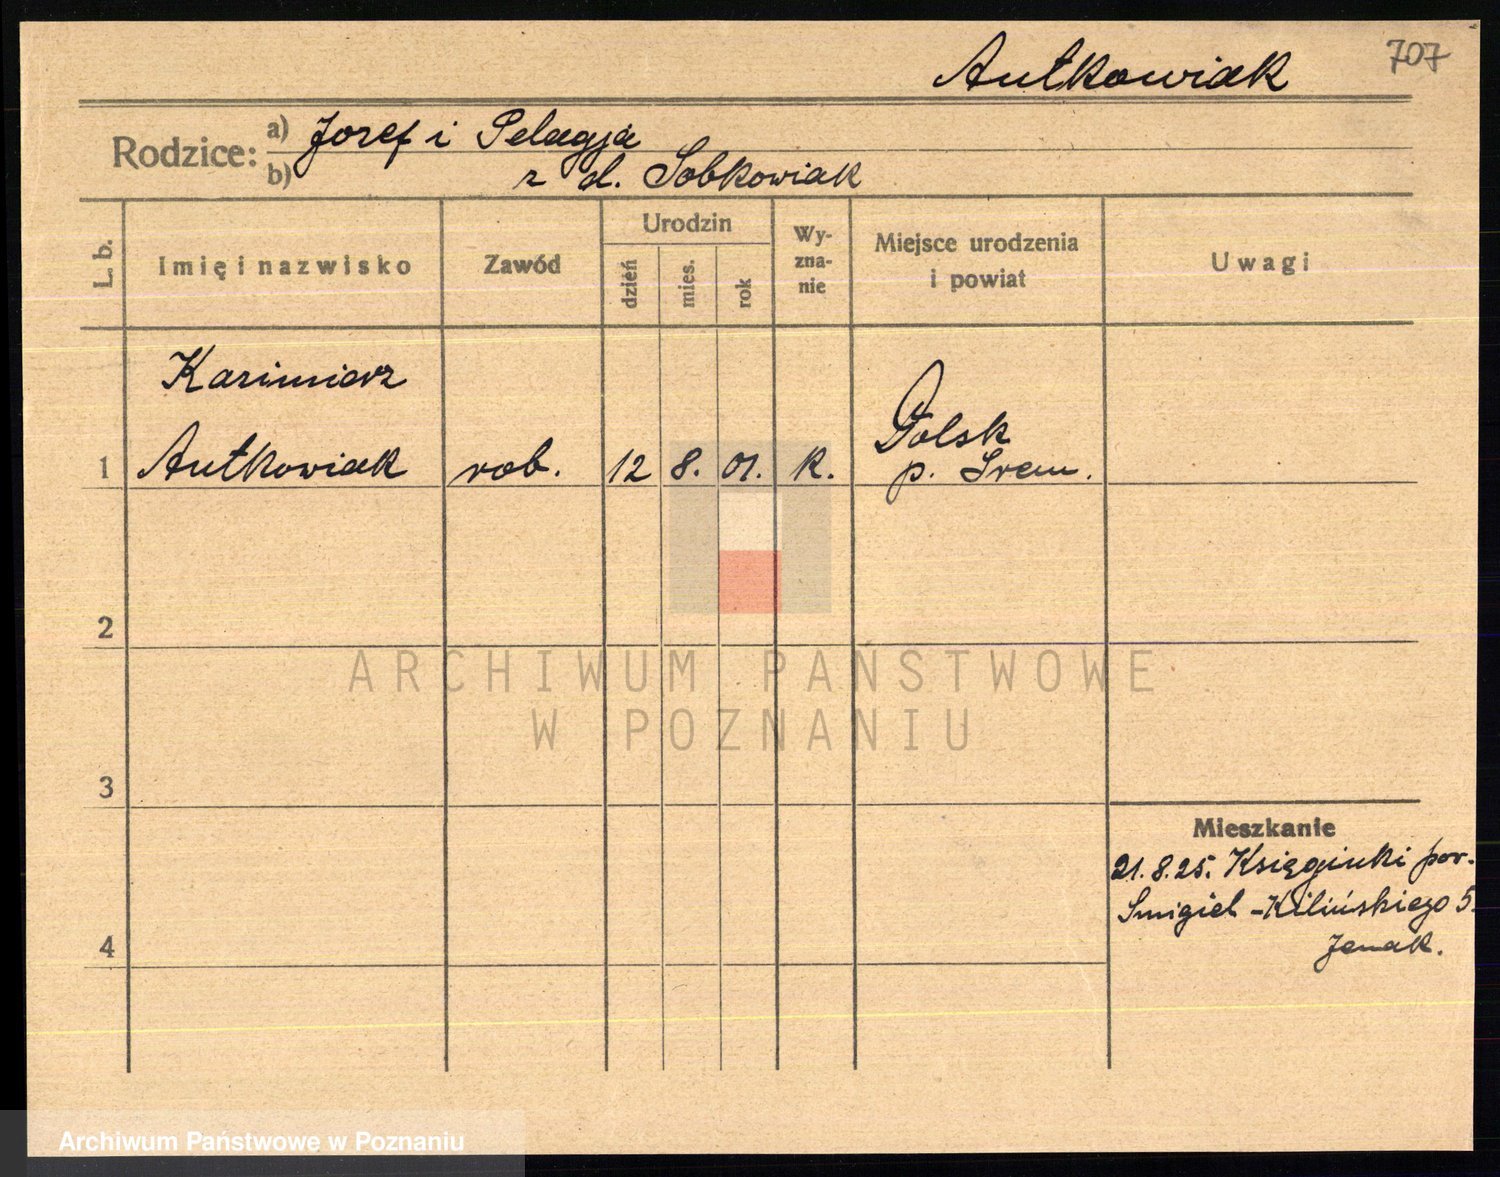 Antkowiak
707
Rodzice:
a) Jozef i Pelagja
b) z d. Sobkowiak
L. b.
Imię i nazwisko
Zawód
Urodzin
dzień
mies.
rok
Wy-
zna-
nie
Miejsce urodzenia
i powiat
Uwagi
Kazimierz
1 Antkowiak rob. 12 8. 01. k. Dolsk
p. Śrem.
2
ARCHIWUM PAŃSTWOWE
W POZNANIU
3
Mieszkanie
21.8.25. Księginki pow.
Śmigiel - Kilińskiego 5.
4
Archiwum Państwowe w Poznaniu